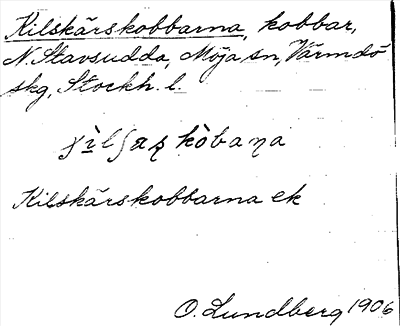 Kilskärskobbarna, kobbar,
N. Stavsudda, Möja sn, Värmdö
skg, Stockh. l.
kòbaɳa
Kilskärskobbarna ek
O. Lundberg 1906